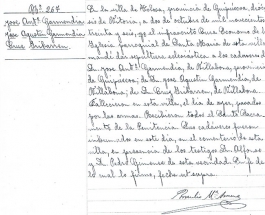 Nº 267
José Antº Garmendia
José Agustin Garmendia
Cruz Guibarren
En la villa de Tolosa, provincia de Guipúzcoa, dióce-
sis de Vitoria, a dos de octubre de mil novecientos
treinta y seis, yo el infrascrito Cura Ecónomo de la
Iglesia parroquial de Santa María de esta villa
mandé dar sepultura eclesiástica a los cadáveres
D. José Antº Garmendia, de Villabona, provincia
de Guipúzcoa; de D. José Agustin Garmendia, de
Villabona; de D. Cruz de Villabona
fallecieron en esta villa, el día de ayer, pasados
por las armas. Recibieron todos el Santo Sacra-
mento de la Penitencia. Sus cadáveres fueron
inhumados en este día, en el cementerio de esta
villa, en presencia de los testigos D. Alfonso
y D. Pedro Gimenez de esta vecindad. En fe de
lo cual lo firmo, fecha ut supra.